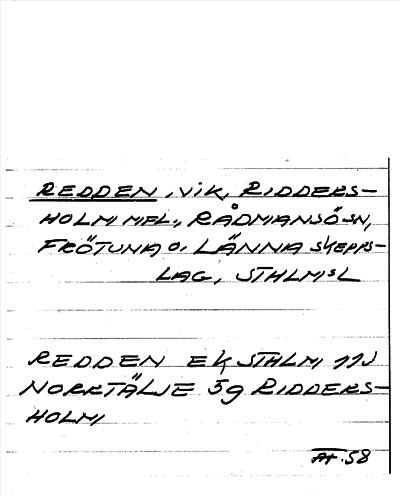 REDDEN, vik, RIDDERS-
HOLM MFL., RÅDMANSÖ SN,
FRÖTUNA O. LÄNNA SKEPPS-
LAG, STHLMS L
REDDEN EK STHLM 11J
NORRTÄLJE 5g RIDDERS-
HOLM
58